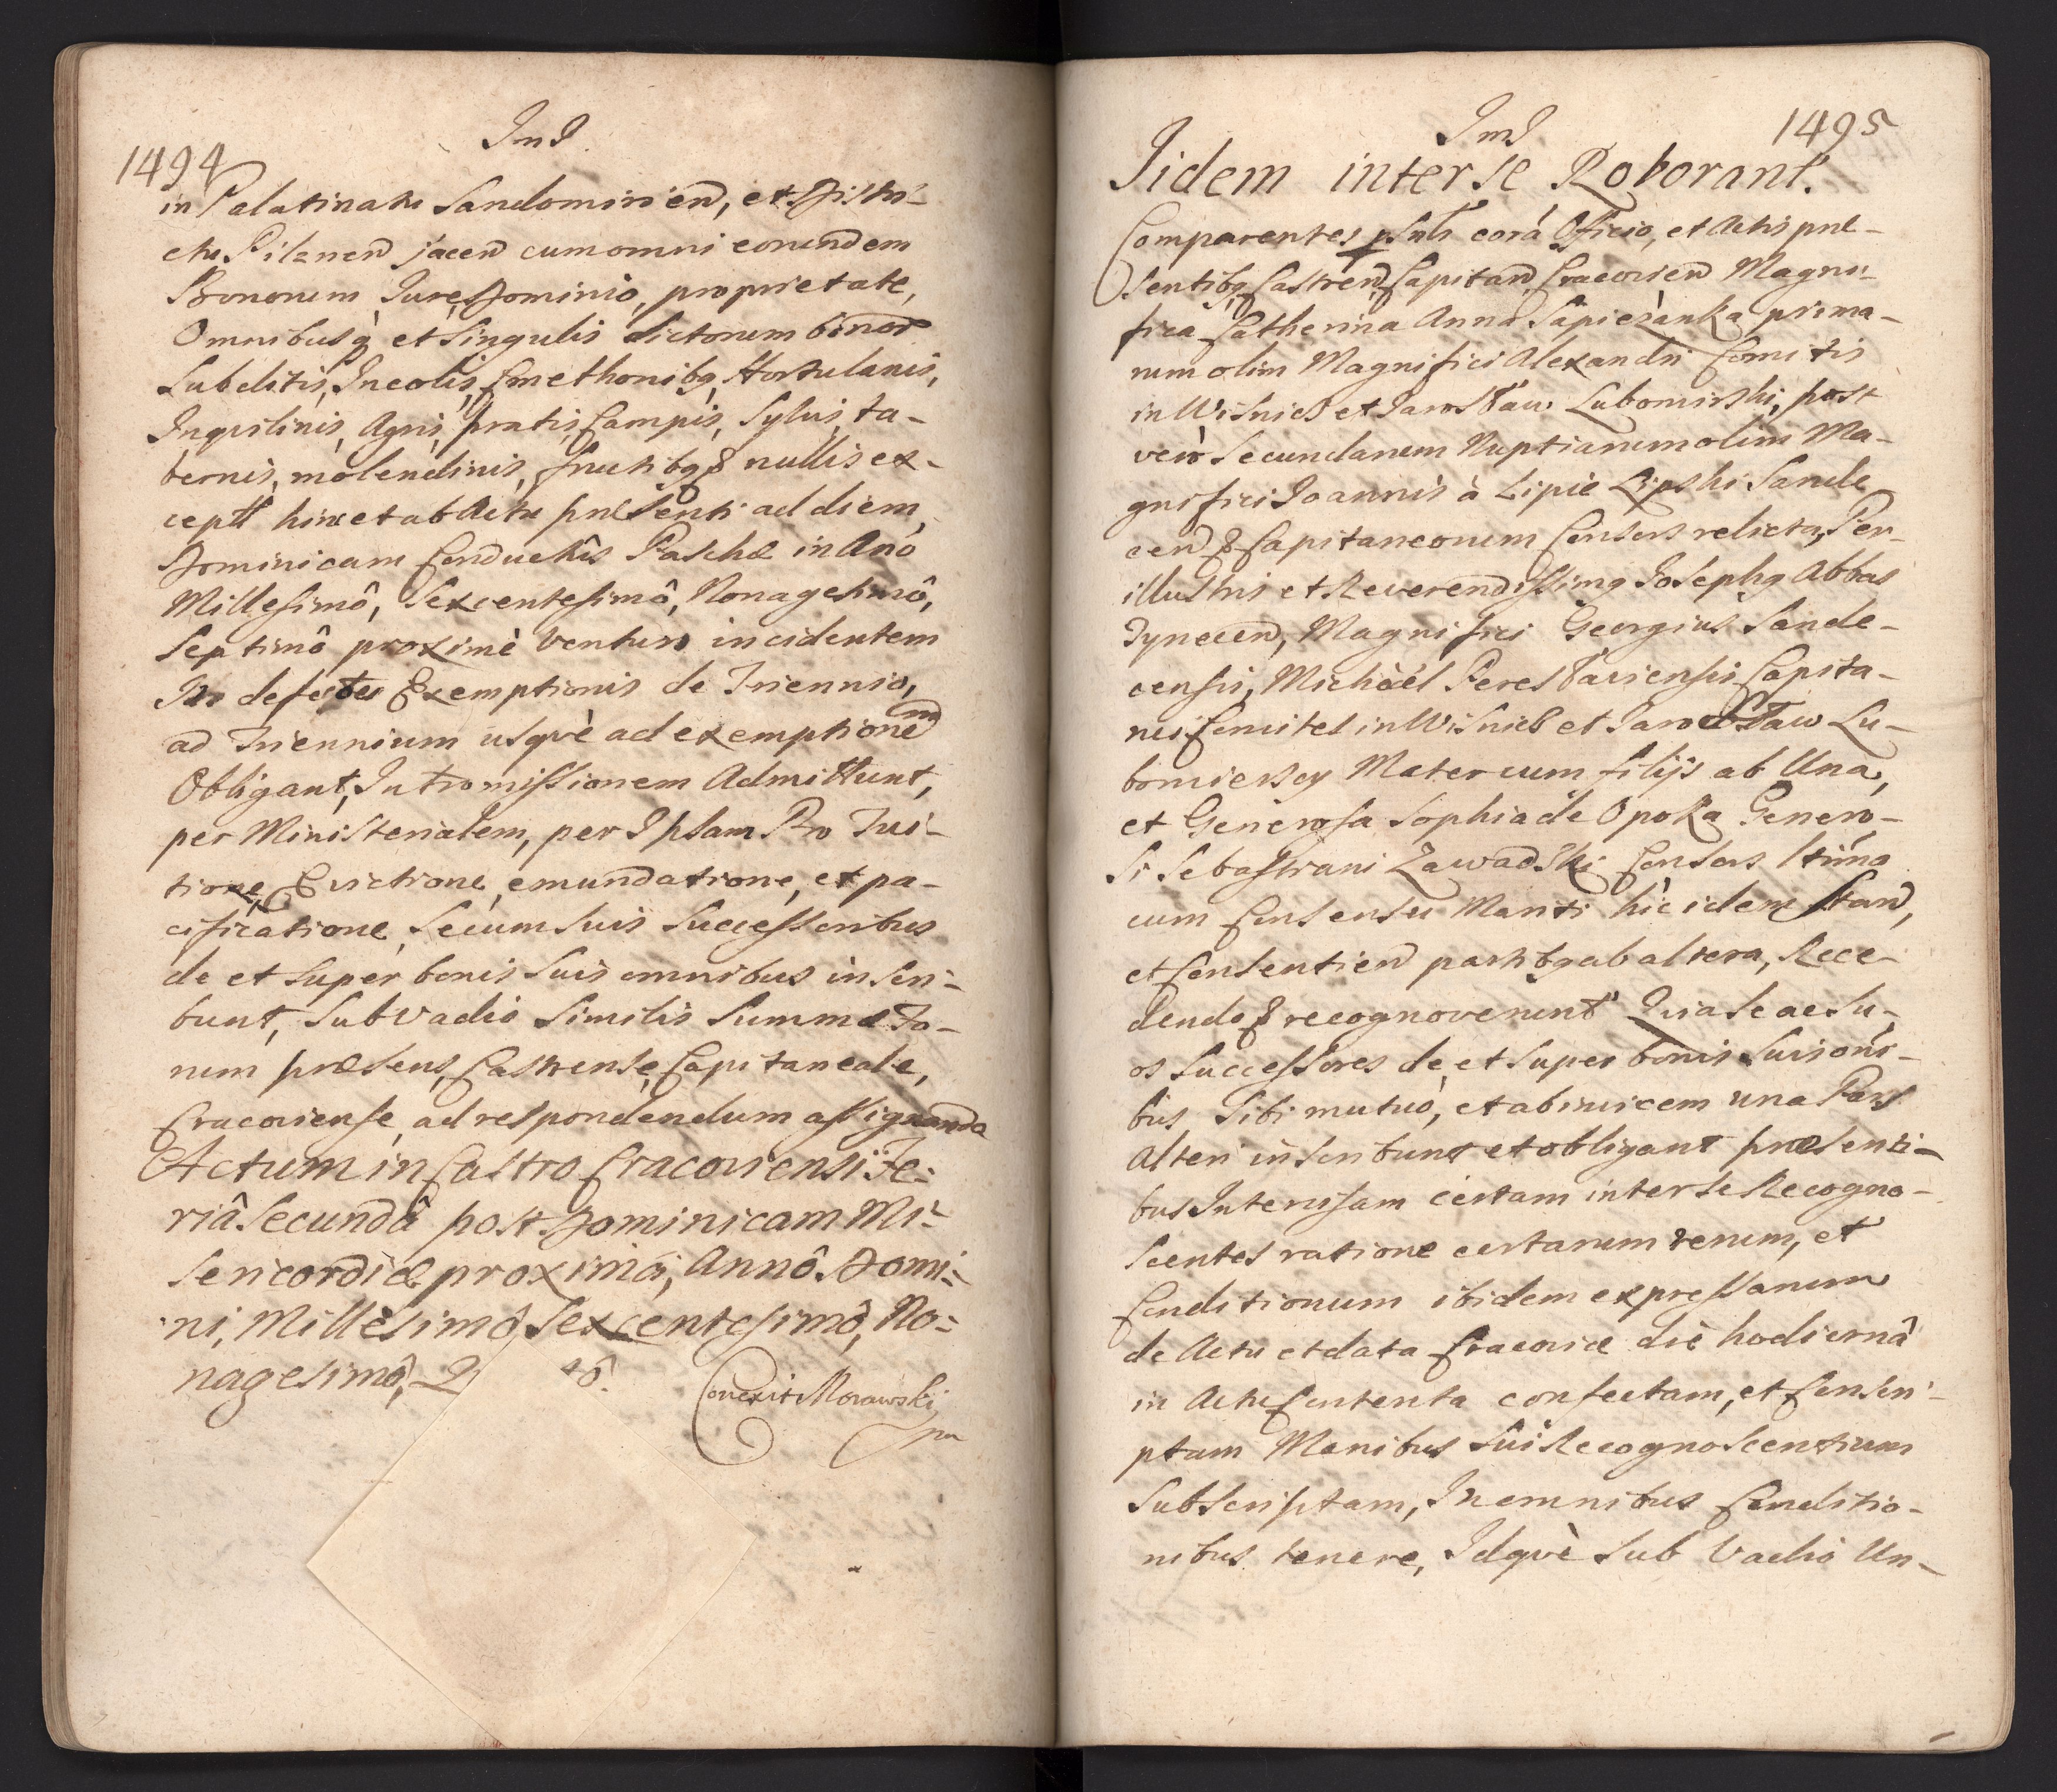 1494
JmJ.
in Palatinatu Sandomirien, et Distri-
ctu Pilznen jacen cum omni eorundem
Bonorum Jure, Dominio, proprietate,
Omnibusq et Singulis dictorum bonor
Subditis, Incolis, Cmethonibq, Hortulanis,
Inquilinis, Agris, Pratis, Campis, Sylvis, ta-
bernis, molendinis, fructibq & nullis ex-
ceptt hinc et ab Actu præsenti ad diem,
Dominicam Conductûs Paschæ in Año
Millesimô, Sexcentesimô, Nonagesimô,
Septimô proximè venturo incidentem
In defectu Exemptionis de Triennio,
ad Triennium usqvè ad exemptionem
Obligant, Intromissionem Admittunt,
per Ministerialem, per Ipsam Pro Tui-
tione, Evictione, emundatione, et pa-
cificatione, Se cum Suis Successoribus
de et Super bonis Suis omnibus inscri-
bunt, Sub vadio Similis Summæ Fo-
rum præsens, Castrense, Capitaneale,
Cracoviense, ad respondendum assignando
Actum in Castro Cracoviensi Fe:
riâ Secundâ post Dominicam Mi:
sericordiæ proximâ, Annô Domi:
ni, Millesimô, Sexcentesimô, No:
nagesimô, Q tô.
Correxit Morawski
mp
1495
JmJ
Iidem inter se Roborant.
Comparentes psnts corã Officio, et Actis præ-
sentibq Castren, Capitan, Cracovien Magni-
fica Catherina Anna Sapieżanka prima-
rum olim Magnifici Alexandri Comitis
in Wisnicz et Jarosław Lubomirski, post
verò Secundarum Nuptiarum olim Ma-
gnifici Joannis à Lipie Lipski Sande
cen & Capitaneorum Consors relicta, Per-
illustris et Reverendissimq Josephq Abbas
Tynecen, Magnifici Georgius Sande-
censis, Michäel Peresłaviensis Capita-
nei Comites in Wisnicz et Jarosław Lu-
bomierscy Mater cum filijs ab Una,
et Generosa Sophia de Opoka Genero-
si Sebastiani Zawadski Consors ltima
cum Consensu Mariti hic idem stan,
et Consentien partibq ab altera, Rece-
dendo & recognoverunt Quia Se ac Su-
os Successores de, et Super bonis Suis oñi-
bus Sibi mutuò, et ab invicem una Pars
Alteri inscribunt et obligant præsenti-
bus Intercisam certam inter se Recogno-
scentes ratione certarum rerum, et
Conditionum ibidem expressarum
de Actu et data Cracoviæ die hodiernâ
in Actu Contenta confectam, et Conscri-
ptam Manibus Sui Recognoscentium
Subscriptam, In omnibus Conditio-
nibus tenere, Idqvè Sub Vadio Un-